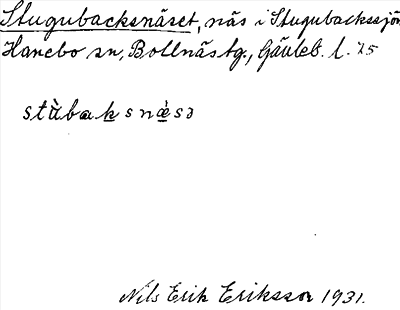 Stugubacksnäset, näs i Stugubackssjön
Hanebo sn, Bollnäs tg., Gävleb. l. 25
stùbaksnæ̀sə
Nils Erik Eriksson 1931.